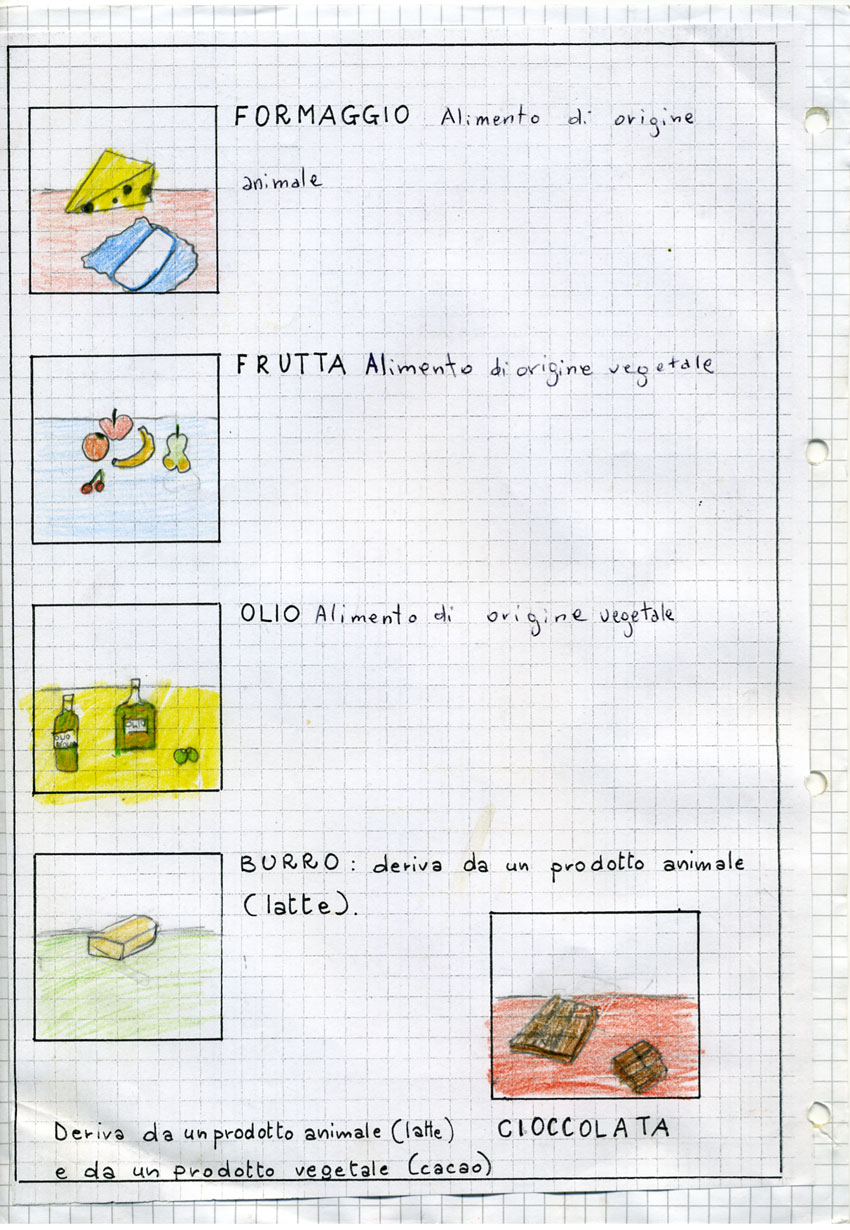 FORMAGGIO Alimento di origine
animale
FRUTTA Alimento di origine vegetale
OLIO Alimento di origine vegetale
OLIO
OLIO
BURRO: deriva da un prodotto animale
(latte).
CIOCCOLATA
Deriva da un prodotto animale (latte)
e da un prodotto vegetale (cacao)